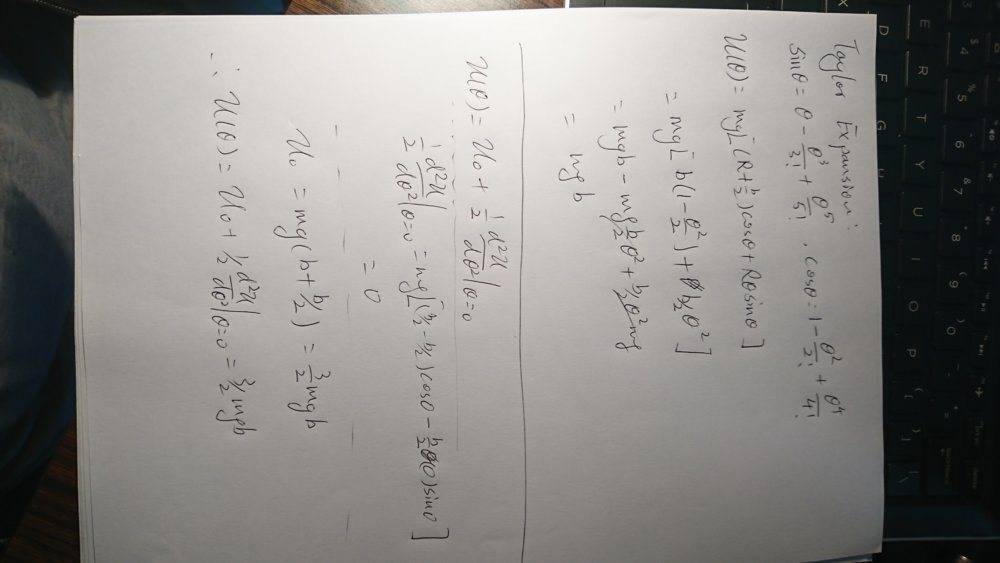 Taylor Expansion:
sinθ = θ - θ³/3! + θ⁵/5! , cosθ = 1 - θ²/2! + θ⁴/4!
U(θ) = mg[(R+b/2)cosθ + Rθsinθ]
= mg[b(1-θ²/2) + b/2θ²]
= mgb - mgb/2θ² + b/2θ²mg
= mgb
U(θ) = U₀ + 1/2 d²U/dθ²|θ=0
1/2 d²U/dθ²|θ=0 = mg[(b/2-b/2)cosθ - b/2(0)sinθ]
= 0
U₀ = mg(b+b/2) = 3/2mgb
∴ U(θ) = U₀ + 1/2 d²U/dθ²|θ=0 = 3/2mgb